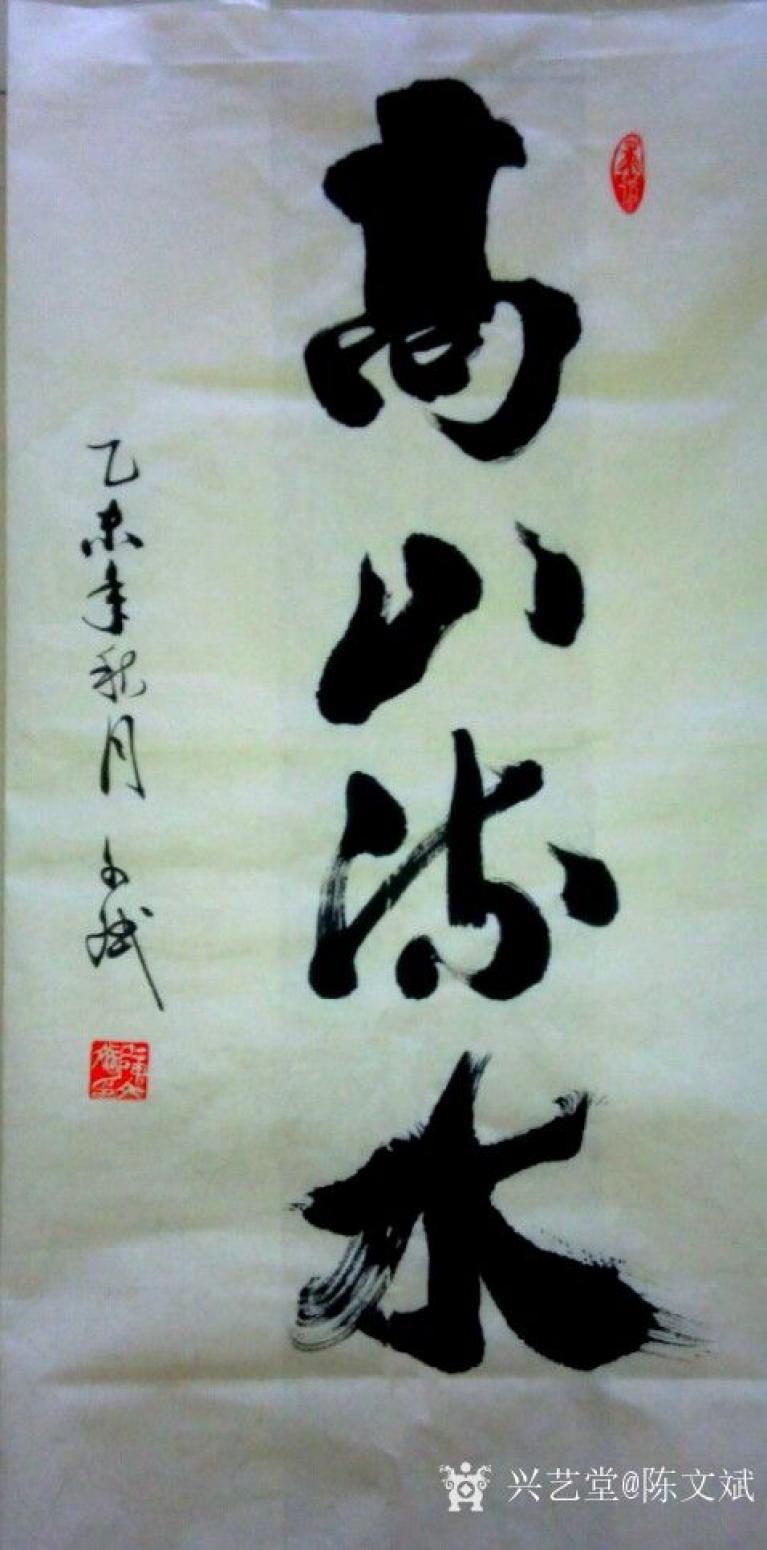 高山流水
乙未年秋月 文斌
兴艺堂@陈文斌